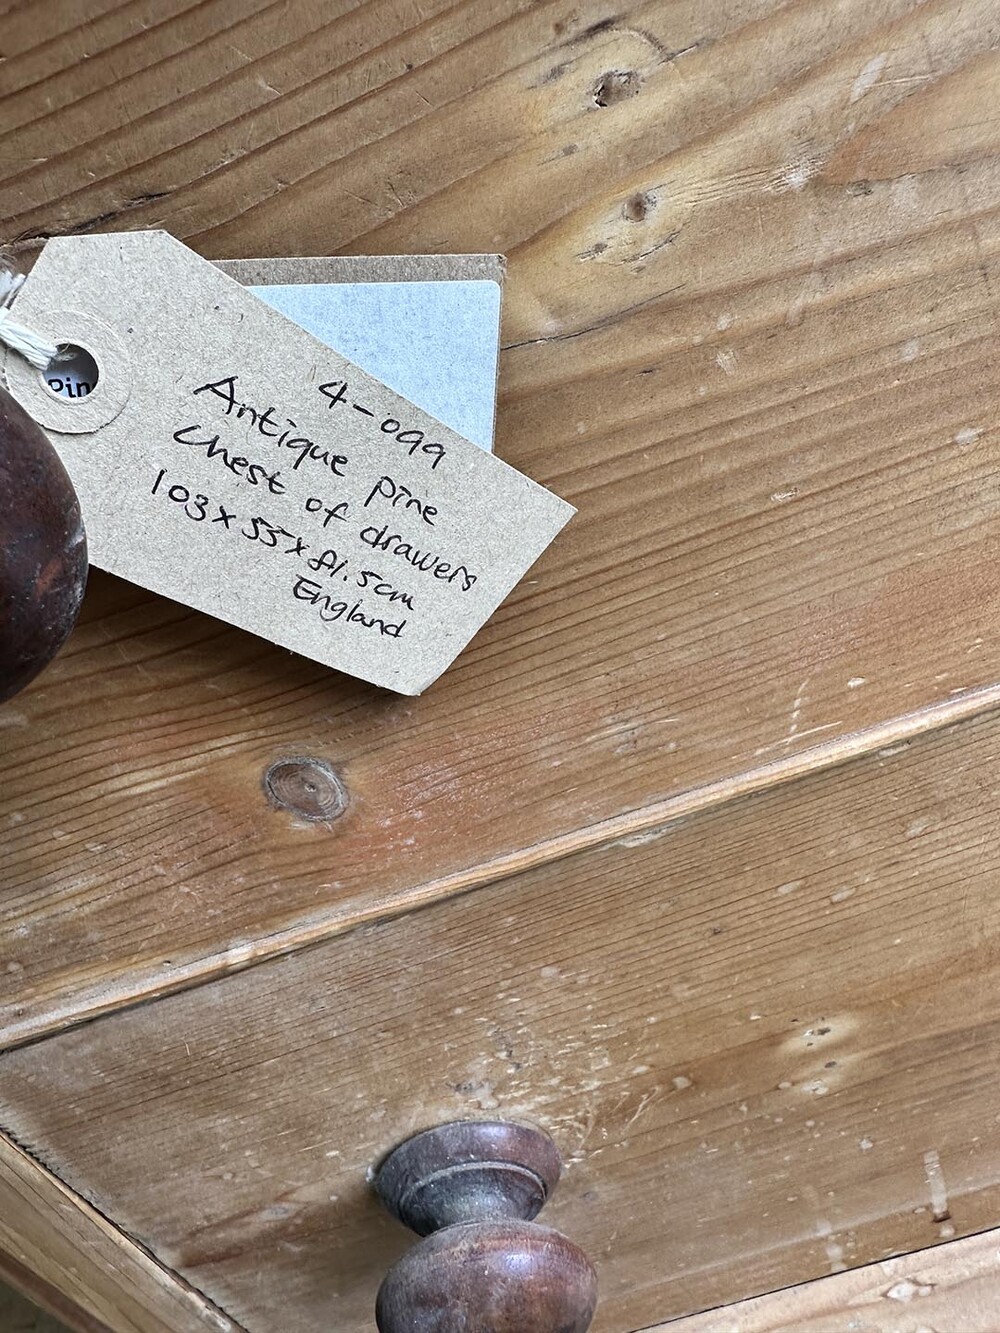 4-099
Antique pine
chest of drawers
103 x 55 x 81.5cm
England
pin